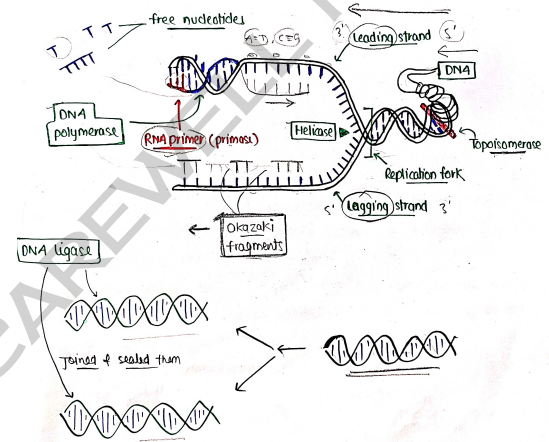 free nucleotides
T T T
A=T, C≡G
3' Leading strand 5'
DNA
DNA
polymerase
RNA primer (primase)
Helicase
Topoisomerase
Replication fork
5' Lagging strand 3'
Okazaki
fragments
DNA ligase
Joined & sealed them
CAREWELL